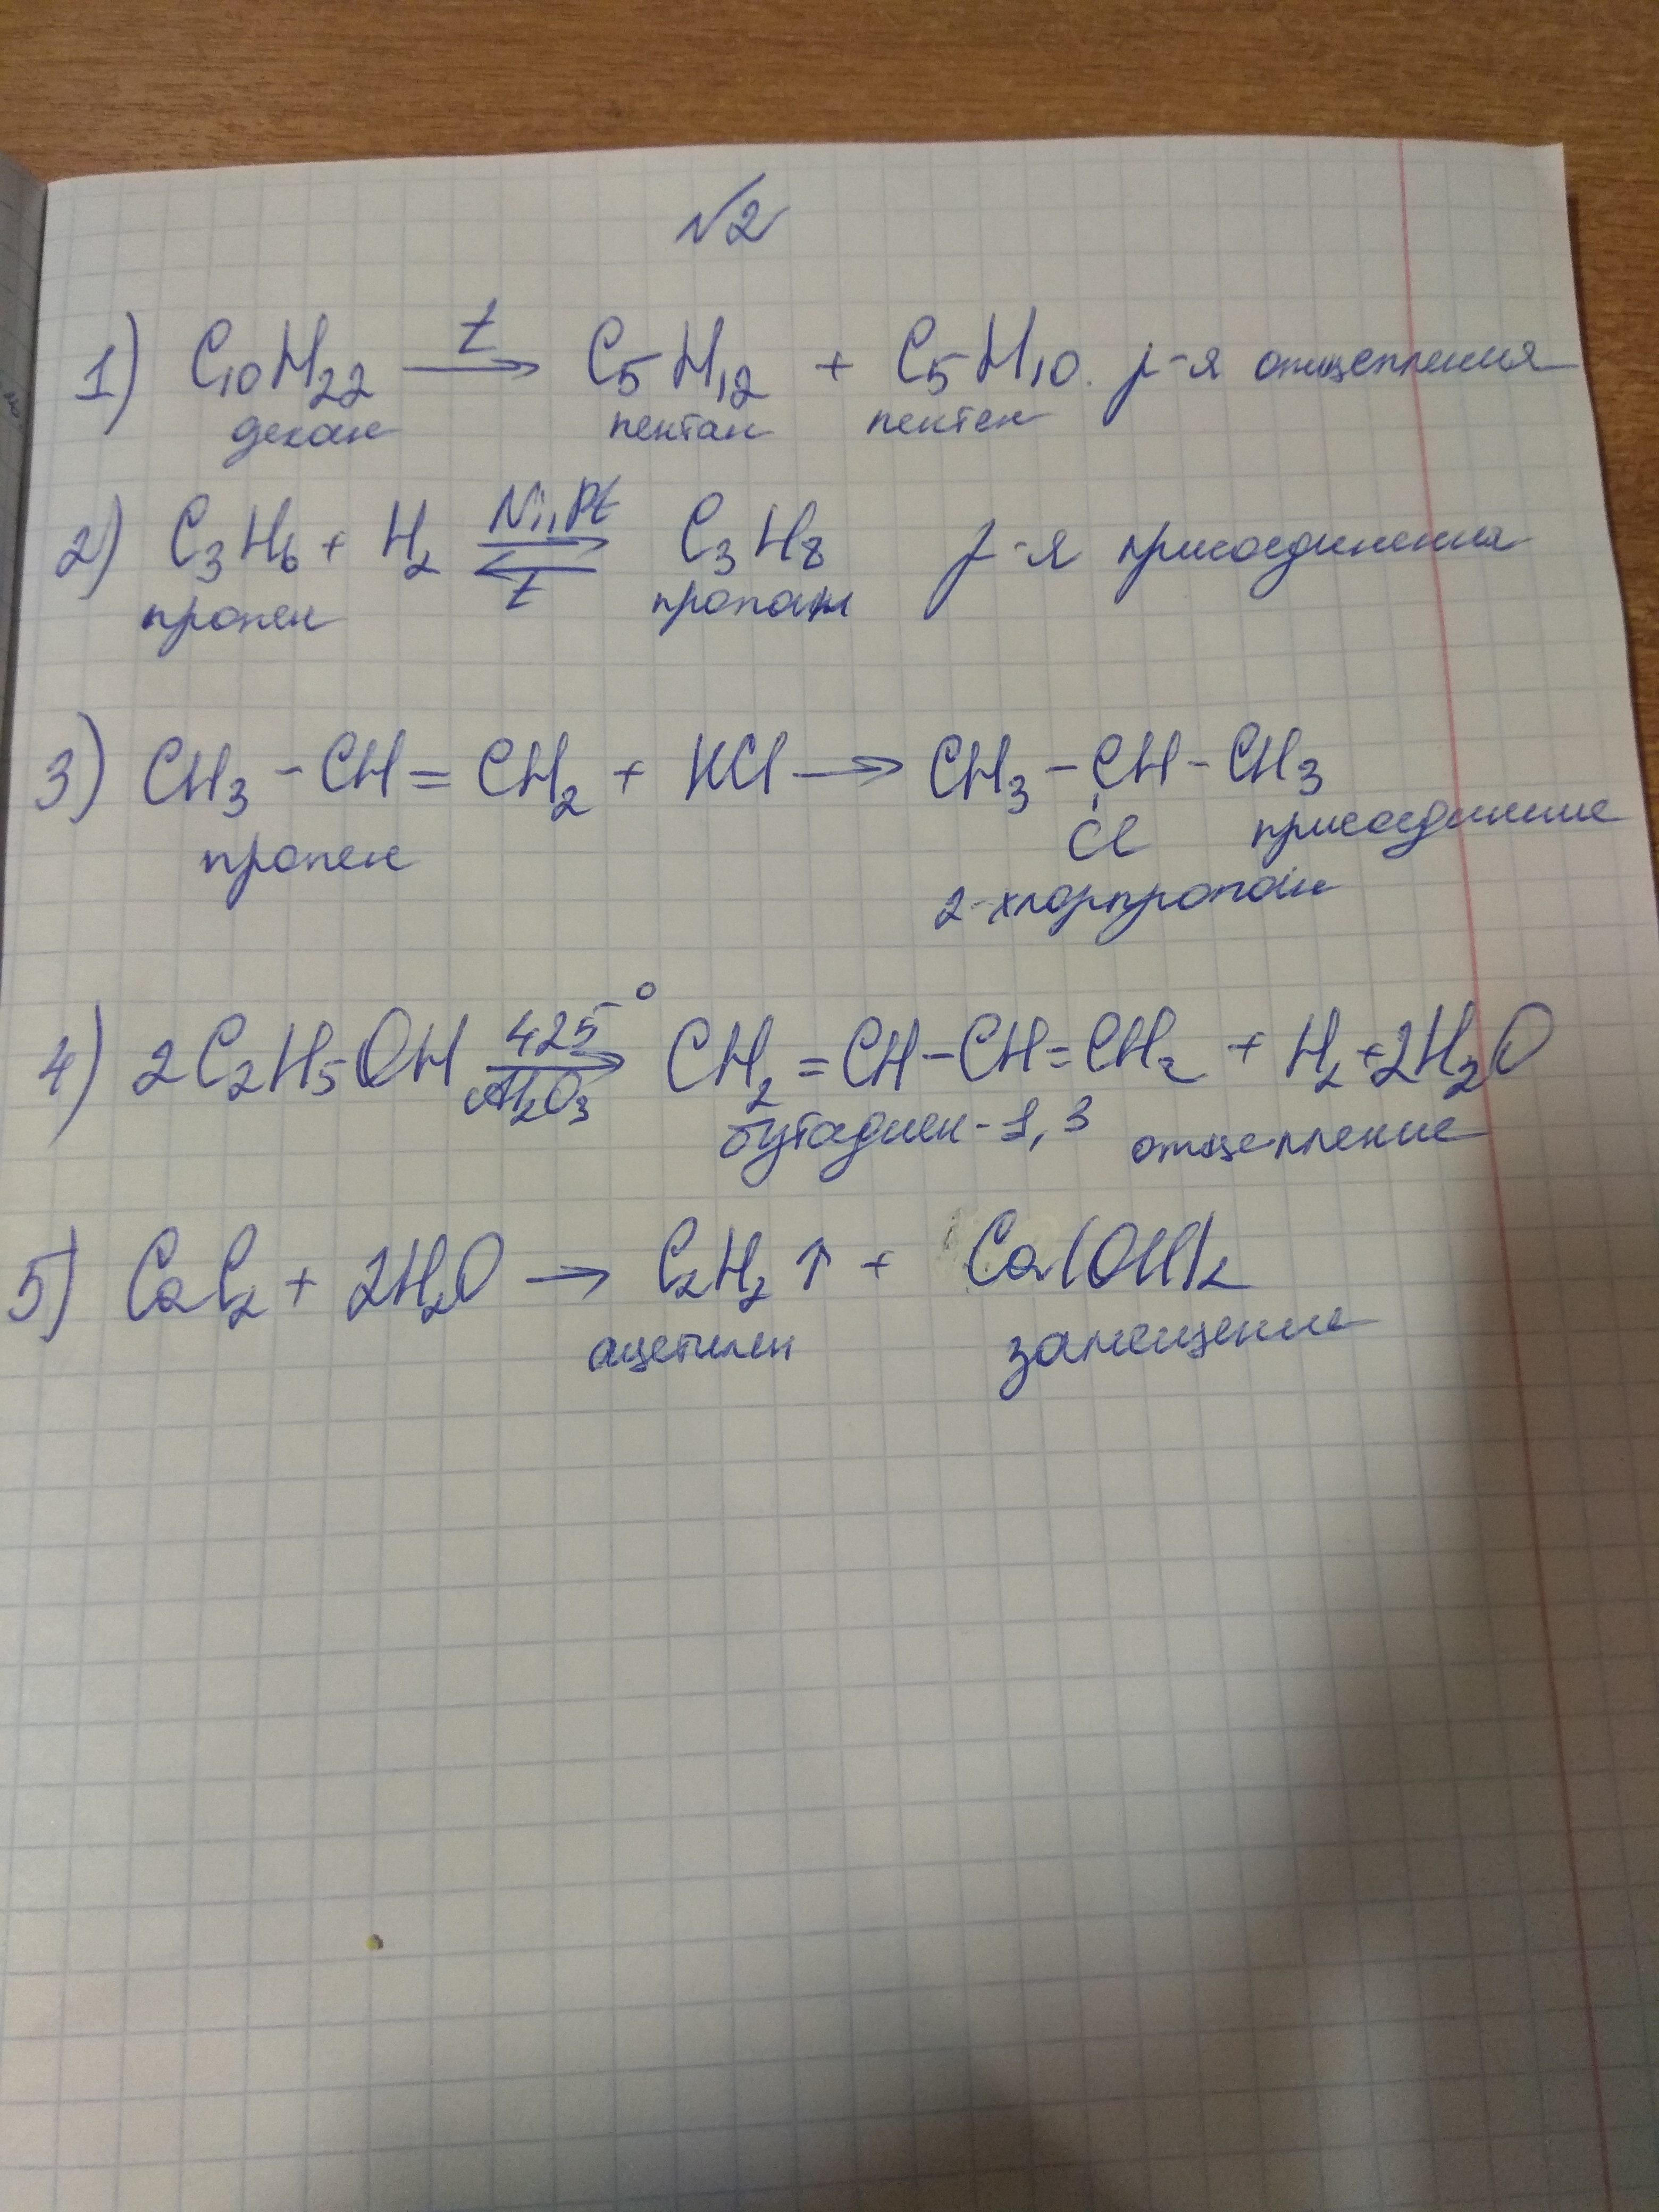 №2
1) C₁₀H₂₂ –t→ C₅H₁₂ + C₅H₁₀. р-я отщепления
декан пентан пентен
Ni, Pt
2) C₃H₆ + H₂ ⇄ C₃H₈ р-я присоединения
t
пропен пропан
3) CH₃ - CH = CH₂ + HCl → CH₃ - CH - CH₃
пропен Cl присоединение
2-хлорпропан
425°
4) 2C₂H₅OH → CH₂ = CH - CH = CH₂ + H₂ + 2H₂O
Al₂O₃ бутадиен-1,3 отщепление
5) CaC₂ + 2H₂O → C₂H₂ ↑ + Ca(OH)₂
ацетилен замещение